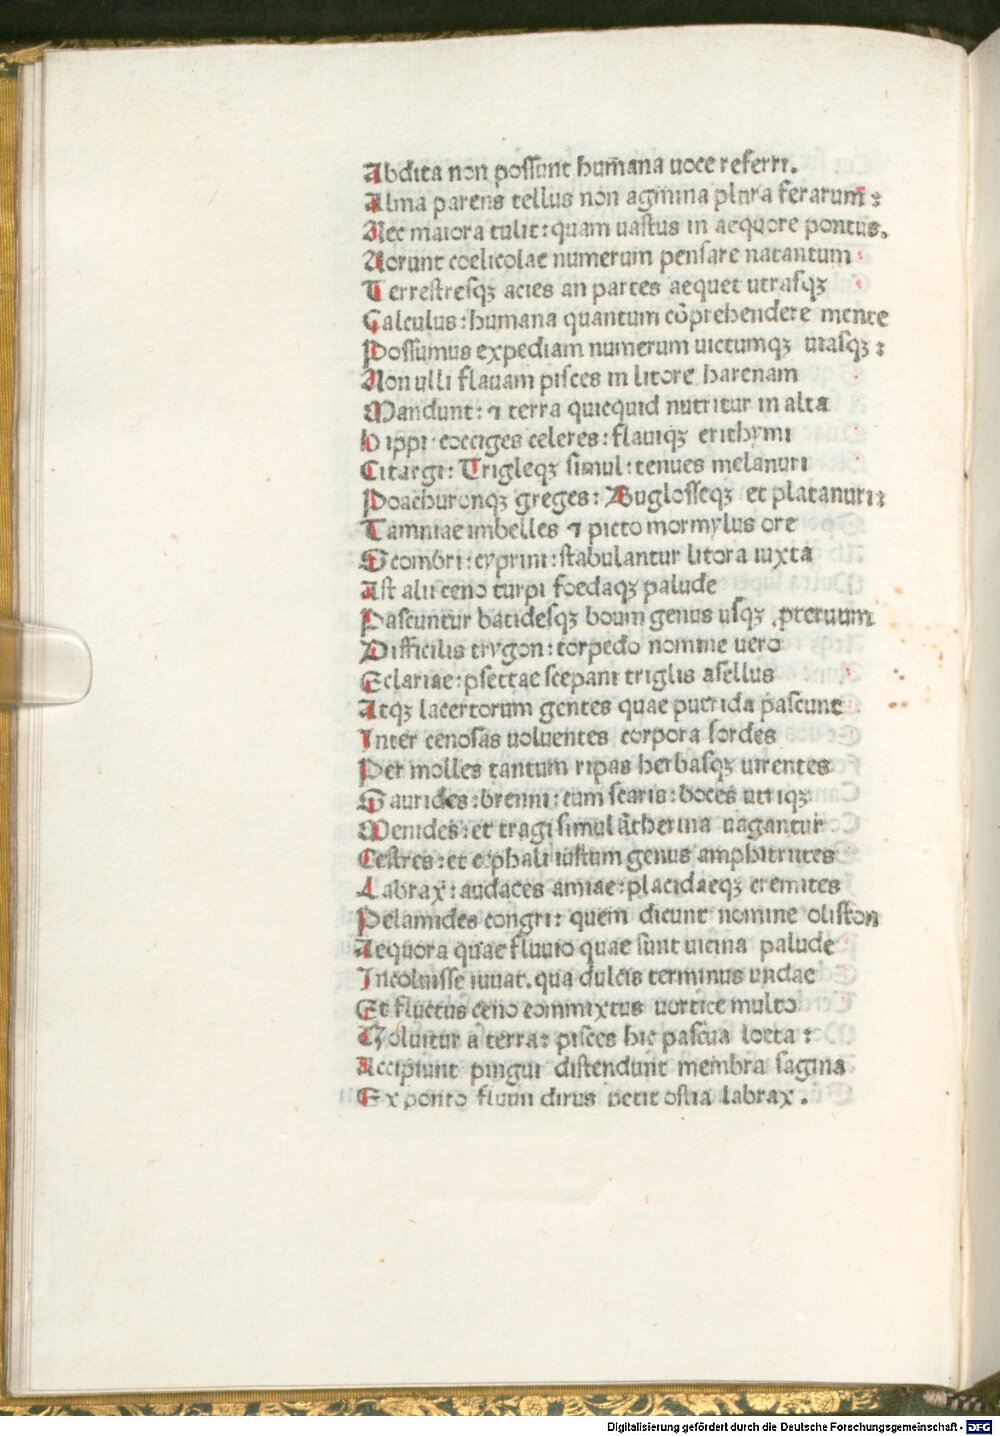 Abdita non possunt hum̄ana uoce referri.
Alma parens tellus non agmina plura ferarum̄:
Nec maiora tulit: quam uastus in aequore pontus.
Norunt coelicolae numerum pensare natantum
Terrestresqꝫ acies an partes aequet utrasqꝫ
Calculus: humana quantum cōprehendere mente
Possumus expediam numerum uictumqꝫ uiasqꝫ:
Non ulli flauam pisces in litore harenam
Mandunt: ⁊ terra quicquid nutritur in alta
Hippi cocciges celeres: flauiqꝫ erithymi
Citargi: Trigleqꝫ simul: tenues melanuri
Poachuronqꝫ greges: Buglosseqꝫ et platanuri:
Tamniae imbelles ⁊ picto mormylus ore
Scombri: cyprini: stabulantur litora iuxta
Ast alii ceno turpi foedaqꝫ palude
Pascuntur batidesqꝫ boum genus usqꝫ ꝓteruum
Difficilis trygon: torpedo nomine uero
Eclariae: psettae scepani triglis asellus
Atqꝫ lacertorum gentes quae putrida pascunt
Inter cenosas uoluentes corpora sordes
Per molles tantum ripas herbasqꝫ uirentes
Saurides: brenni: cum scaris: boces utriqꝫ
Menides: et tragi simul atherina uagantur
Cestres: et cephali iustum genus amphitrites
Labrax: audaces amiae: placidaeqꝫ cremites
Pelamides congri: quem dicunt nomine oliston
Aequora quae fluuio quae sunt uicina palude
Incoluisse iuuat. qua dulcis terminus undae
Et fluctus ceno commixtus uortice multo
Voluitur a terra: pisces hic pascua loeta:
Accipiunt pingui distendunt membra sagina
Ex ponto fluuii dirus petit ostia labrax.
Digitalisierung gefördert durch die Deutsche Forschungsgemeinschaft - DFG